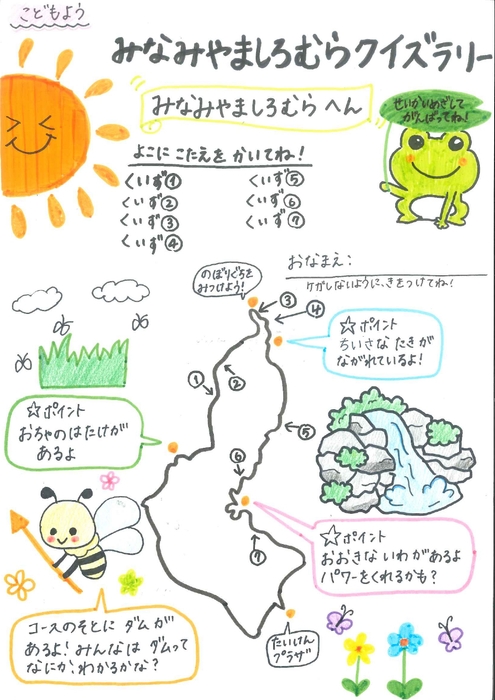 こどもよう
みなみやましろむらクイズラリー
みなみやましろむら へん
せいかいめざして
がんばってね！
よこに こたえを かいてね！
くいず①
くいず②
くいず③
くいず④
くいず⑤
くいず⑥
くいず⑦
おなまえ：
ケガしないように、きをつけてね！
のぼりぐちを
みつけよう！
③
④
☆ポイント
ちいさな たきが
ながれているよ！
①
②
☆ポイント
おちゃのはたけが
あるよ
⑤
⑥
☆ポイント
おおきな いわがあるよ
パワーをくれるかも？
⑦
コースのそとに ダムが
あるよ！みんなは ダムって
なにか、わかるかな？
たいけん
プラザ